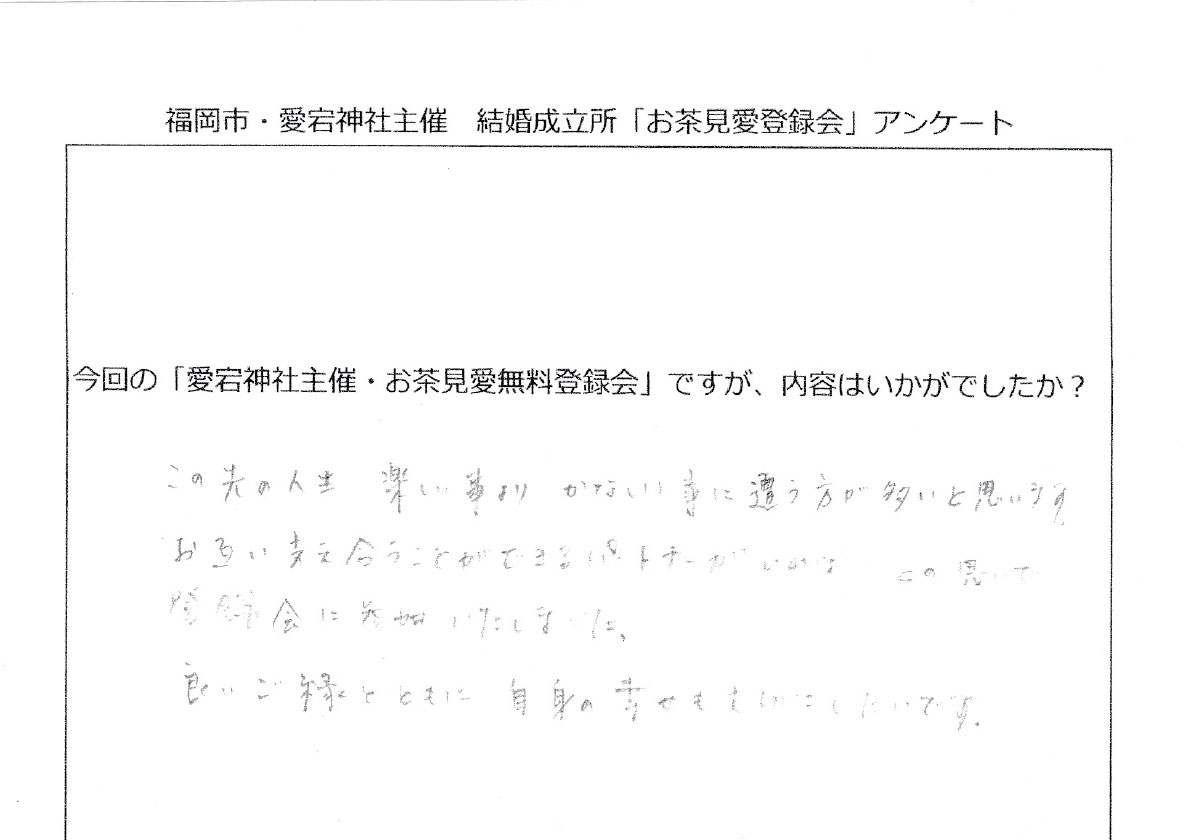 福岡市・愛宕神社主催　結婚成立所「お茶見愛登録会」アンケート
今回の「愛宕神社主催・お茶見愛無料登録会」ですが、内容はいかがでしたか？
この先の人生 楽しい事より かなしい事に遭う方が多いと思います
お互い支え合うことができるパートナーが との思いで
登録会に参加いたしました、
良いご縁とともに 自身の幸せも大切にしたいです.